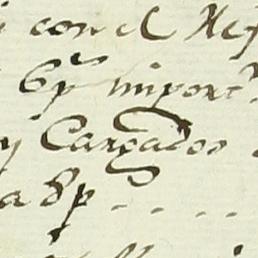 con el Ref
6p^s import^
y Cargados
a 8p^s